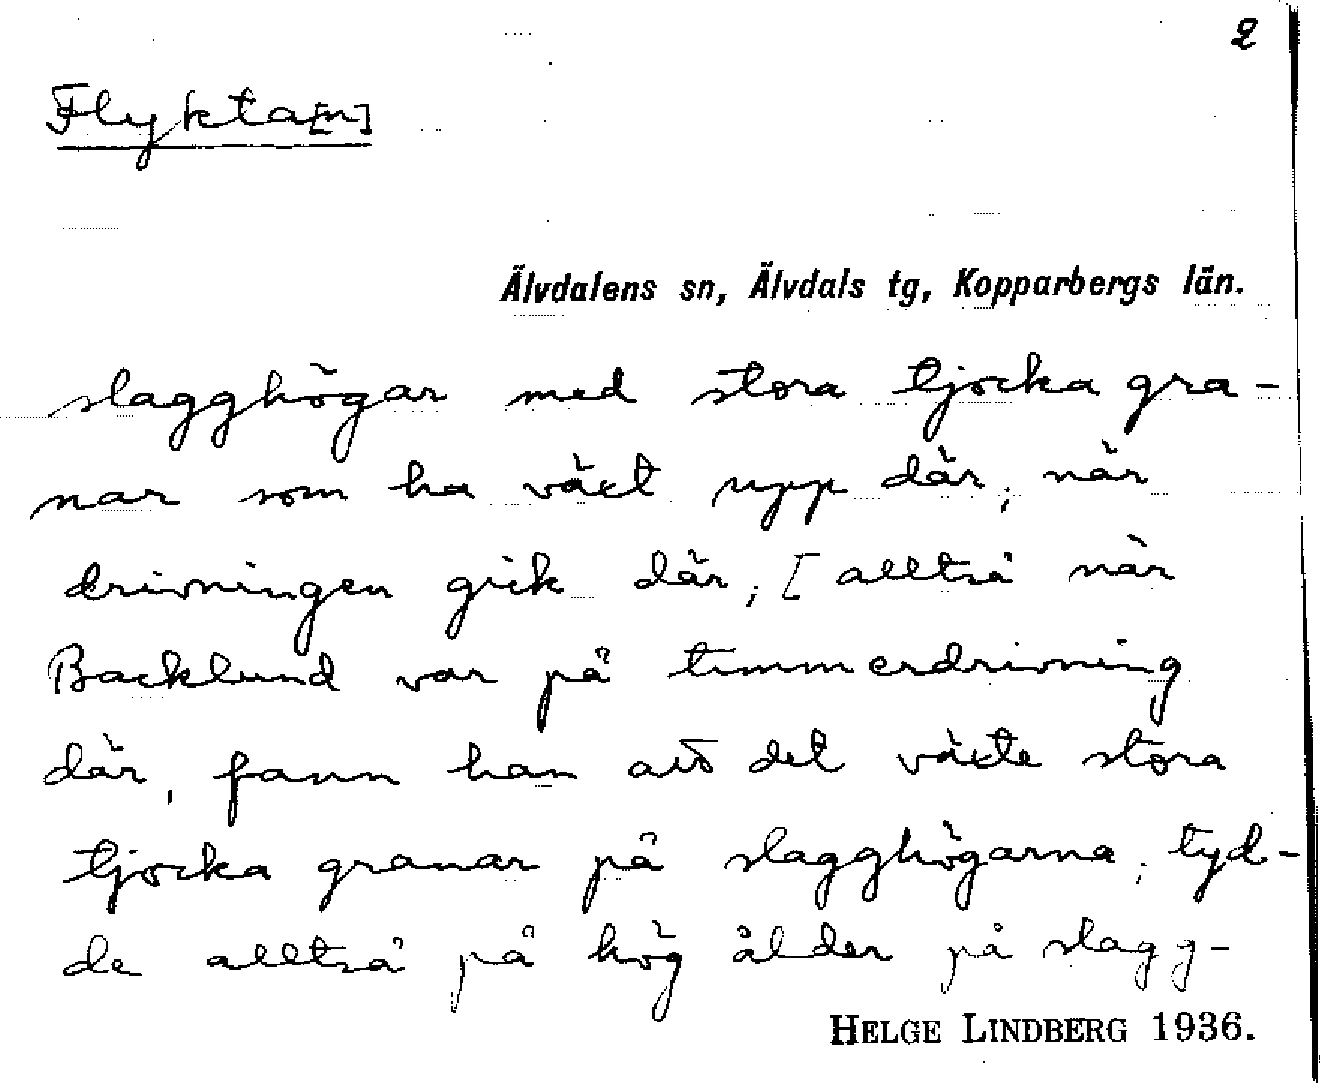 2
Flykta[n]
Älvdalens sn, Älvdals tg, Kopparbergs län.
slagghögar med stora tjocka gra-
nar som ha växt upp där, när
drivningen gick där, [alltså när
Backlund var på timmerdrivning
där, fann han att det växte stora
tjocka granar på slagghögarna, tyd-
de alltså på hög ålder på slagg-
HELGE LINDBERG 1936.